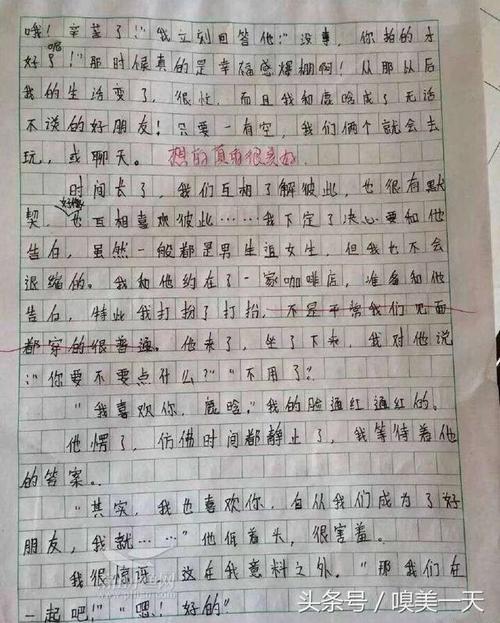 哦！辛苦了！"我立刻回答他："没事，你拍的才
呢
好了！"那时候真的是幸福感爆棚啊！从那以后
我的生活变了，很忙，而且我和鹿晗成了无话
不说的好朋友！只要一有空，我们俩个就会去
玩，或聊天。想的真有很美好
时间长了，我们互相了解彼此，也很有默
好像
契，也互相喜欢彼此……我下定了决心要和他
告白，虽然一般都是男生追女生，但我也不会
退缩的。我和他约在了一家咖啡店，准备和他
告白，特此我打扮了打扮，不是平常我们见面
都穿的很普通。他来了，坐了下来，我对他说
："你要不要点什么？""不用了。"
"我喜欢你，鹿晗。"我的脸通红通红的。
他愣了，仿佛时间都静止了，我等待着他
的答案。
"其实，我也喜欢你，自从我们成为了好
朋友，我就……"他低着头，很害羞。
我很惊讶，这在我意料之外。"那我们在
一起吧！""嗯！好的！"
头条号／嗅美一天